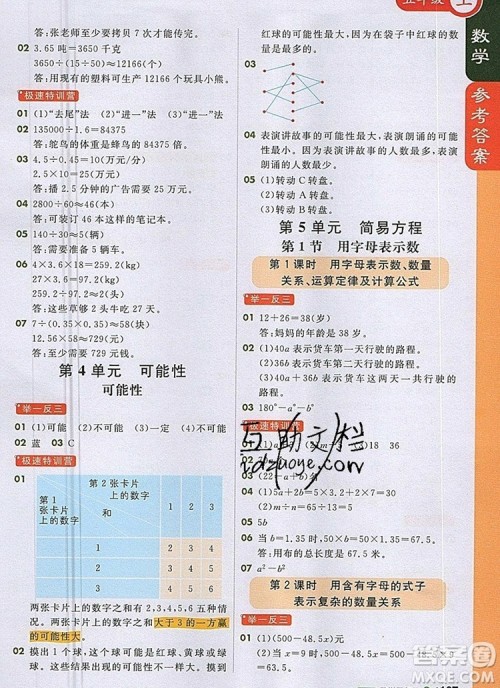 五年级 上
数学
参考答案
答:张老师最多投 7 次才能传完。
02 3.65 吨=3650 千克
3650÷(15÷50)≈12166(个)
答:用现有塑料可生产 12166 个玩具小熊。
极速特训营
01 (1)“去尾”法 (2)“进一”法 (3)“进一”法
02 135000÷1.6=84375
答:鸵鸟的体重是蜂鸟的 84375 倍。
03 4.5÷0.45=10(万元)
10×2.5=25(万元)
答:播 2.5 分钟的广告需要 25 万元。
04
答:可以写 46 本这样的笔记本。
05 140÷30≈5(辆)
答:需要准备 5 辆车。
06 4×3.6×18=259.2(kg)
3.6×36=129.6(kg)
259.2÷129.6=2(头)
答:这些草够 2 头大象吃 36 天。
07 7÷(0.35×0.35)≈58(块)
58×12.5≈729(元)
答:至少需要 729 元钱。
第 4 单元 可能性
可能性
举一反三
01 (1)可能 (2)不可能 (3)一定 (4)不可能
02 蓝 03 C
极速特训营
01
第 2 张卡片上的数字
第 1 张卡片上的数字
和
1 2 3
1 2 3 4
2 3 4 5
3 4 5 6
两张卡片上的数字之和有 2,3,4,5,6 这五种情况。
两张卡片上的数字之和大于 3 的一方赢的可能性大。
02 摸出 1 个球,这个球可能是红球、黄球或绿球。这些结果出现的可能性不相同。摸到
红球的可能性最大,因为在袋子中红球的数量最多。
03
04 表演讲故事的可能性最大,因为表演讲故事的人数最多;表演朗诵的可能性最小,因为表演朗诵的人数最少。
05 (1)转动 C 转盘。
(2)转动 B 转盘。
(3)转动 A 转盘。
第 5 单元 简易方程
第 1 节 用字母表示数
第 1 课时 用字母表示数、数量关系、运算定律及计算公式
举一反三
01 12+26=38(岁)
答:妈妈的年龄是 38 岁。
02 (1)40a 表示货车第一天行驶的路程。
(2)36b 表示货车第二天行驶的路程。
(3)40a+36b 表示货车这两天一共行驶的路程。
03 180°-a°-b°
极速特训营
18 36
04 (1)5a+2x (2)2x+7
(3)5×10+5×3.2+2×7=80
(4)5×10+2×7.5=65
05 5b
06 当 b=1.35 时,5b=5×1.35=6.75
答:用布的总长度是 6.75 米。
07
第 2 课时 用含有字母的式子表示复杂的数量关系
举一反三
01 (1)(500-48.5x)元
(2)当 x=9 时,500-48.5x=500-48.5×
互助文档
idzuoye.com
答案圈